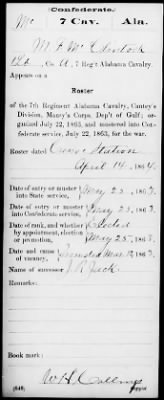 Confederate.
Mc 7 Cav. Ala.
M. F. McClintock
1 Lt, Co. A, 7 Reg't Alabama Cavalry.
Appears on a
Roster
of the 7th Regiment Alabama Cavalry, Cantey's
Division, Maury's Corps, Dep't of Gulf; organized
July 22, 1863, and mustered into Confederate
service, July 22, 1863, for the war.
Roster dated Station
April 14, 1864.
Date of entry or muster
into State service, May 25, 1863.
Date of entry or muster
into Confederate service, 1863.
Date of rank, and whether
by appointment, election
or promotion, Elected
May 25, 1863.
Date and cause
of vacancy, Mar 1863
Name of successor J. R. Jack
Remarks:
Book mark:
(646)
Copyist.